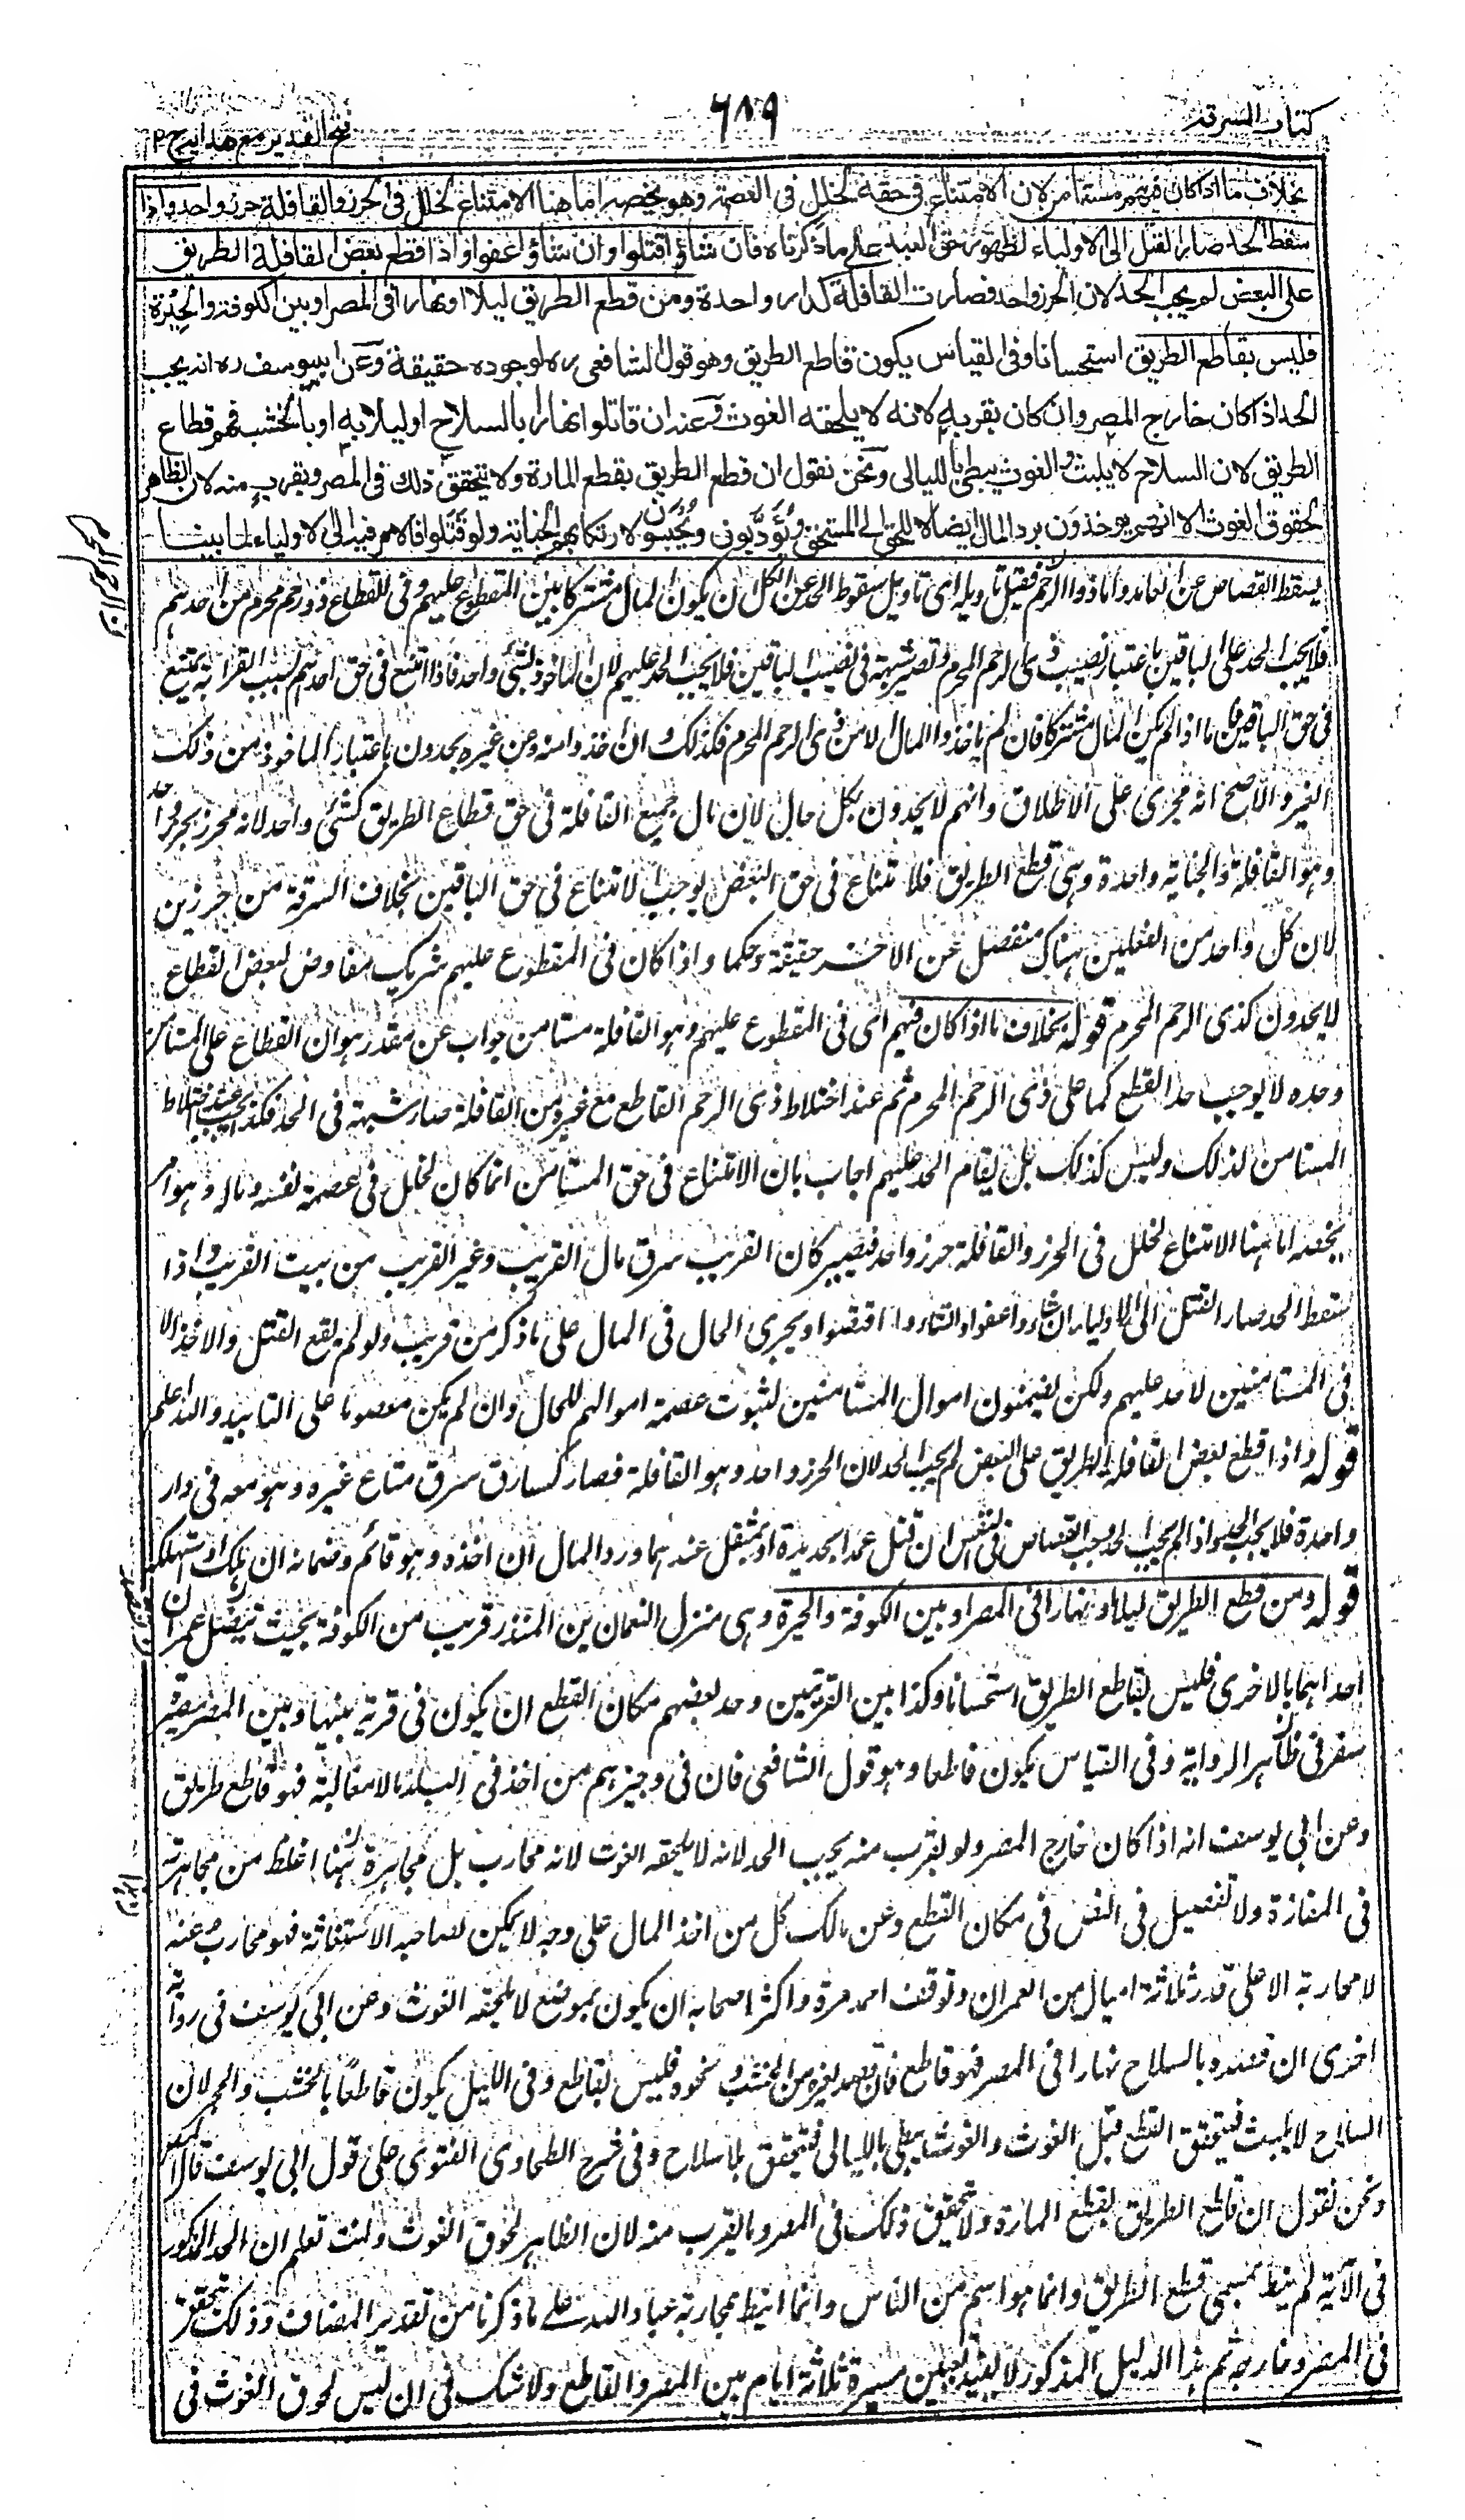 كتاب السرقة
٦٨٩
فتح القدير مع هدايه ج ٢
بخلاف ما اذا كان فيهم مستامن لان الامتناع فى حقه لخلل فى العصمة وهو يخصه اما هنا الامتناع لخلل فى الحرز والقافلة حرز واحد واذا
سقط الحد صار القتل الى الاولياء لظهور حق العبد على ما ذكرناه فان شاؤا قتلوا وان شاؤا عفوا واذا قطع بعض القافلة الطريق
على البعض لم يجب الحد لان الحرز واحد فصارت القافلة كدار واحدة ومن قطع الطريق ليلا او نهارا فى المصر او بين الكوفة والحيرة
فليس بقاطع الطريق استحسانا وفى القياس يكون قاطع الطريق وهو قول الشافعى ره لوجوده حقيقة وعن ابى يوسف ره انه يجب
الحد اذا كان خارج المصر وان كان بقربه لانه لا يلحقه الغوث وعنه ان قاتلوا نهارا بالسلاح او ليلا به او بالخشب فهم قطاع
الطريق لان السلاح لا يلبث والغوث يبطئ بالليالى ونحن نقول ان قطع الطريق بقطع المارة ولا يتحقق ذلك فى المصر وبقرب منه لان الظاهر
لحوق الغوث الا انهم يوخذون برد المال ايصالا للحق الى المستحق ويؤدبون ويحبسون لارتكابهم الجناية ولو قتلوا فالامر فيه الى الاولياء لما بينا
يسقط القصاص عن العامد واما ذو الرحم فقيل تاويله اى تاويل سقوط الحد عن الكل ان يكون المال مشتركا بين المقطوع عليهم وفى القطاع ذو رحم محرم من احدهم
فلا يجب الحد على الباقين باعتبار نصيب ذى الرحم المحرم وتصير شبهة فى نصيب الباقين فلا يجب الحد عليهم لان الماخوذ شئ واحد فاذا امتنع فى حق احدهم بسبب القرابة يمتنع
فى حق الباقين فاما اذا لم يكن المال مشتركا فان لم ياخذوا المال الا من ذى الرحم المحرم فكذلك وان اخذوا منه ومن غيره يحدون باعتبار الماخوذ من ذلك
الغير والاصح انه مجرى على الاطلاق وانهم لا يحدون بكل حال لان مال جميع القافلة فى حق قطاع الطريق كشئ واحد لانه محرز بحرز واحد
وهو القافلة والجناية واحدة وهى قطع الطريق فالامتناع فى حق البعض يوجب الامتناع فى حق الباقين بخلاف السرقة من حرزين
لان كل واحد من الفعلين هناك منفصل عن الاخر حقيقة وحكما واذا كان فى المقطوع عليهم شريك مفاوض لبعض القطاع
لا يحدون كذى الرحم المحرم قوله بخلاف ما اذا كان فيهم اى فى المقطوع عليهم وهو القافلة مستامن جواب عن مقدر هو ان القطاع على المستامن
وحده لا يوجب حد القطع كما على ذى الرحم المحرم ثم عند اختلاط ذى الرحم القاطع مع غيره من القافلة صار شبهة فى الحد فكذا يجب عند اختلاط
المستامن كذلك وليس كذلك بل يقام الحد عليهم اجاب بان الامتناع فى حق المستامن انما كان لخلل فى عصمة نفسه وماله وهو امر
يخصه اما هنا الامتناع لخلل فى الحرز والقافلة حرز واحد فيصير كان القريب سرق مال القريب وغير القريب من بيت القريب واذا
سقط الحد صار القتل الى الاولياء ان شاءوا عفوا وان شاءوا اقتصوا ويجرى الحال فى المال على ما ذكر من قريب ولو لم يقع القتل والاخذ الا
فى المستامنين لا حد عليهم ولكن يضمنون اموال المستامنين لثبوت عصمة اموالهم للحال وان لم يكن معصوما على التابيد والله اعلم
قوله واذا قطع بعض القافلة الطريق على البعض لم يجب الحد لان الحرز واحد وهو القافلة فصار كسارق سرق متاع غيره وهو معه فى دار
واحدة فلا يجب الحد واذا لم يجب الحد وجب القصاص فى النفس ان قتل عمدا بحديدة او بمثقل عندهما ورد المال ان اخذه وهو قائم وضمانه ان هلك او استهلكه
قوله ومن قطع الطريق ليلا او نهارا فى المصر او بين الكوفة والحيرة وهى منزل النعمان بن المنذر قريب من الكوفة بحيث يتصل عمران
احداهما بالاخرى فليس بقاطع الطريق استحسانا وكذا بين القريتين وحد بعضهم مكان القطع ان يكون فى قرية بينها وبين المصر مسيرة
سفر فى ظاهر الرواية وفى القياس يكون قاطعا وهو قول الشافعى فان فى وجيزهم من اخذ فى البلد مالا مغالبة فهو قاطع طريق
وعن ابى يوسف انه اذا كان خارج المصر ولو بقرب منه يجب الحد لانه لا يلحقه الغوث لانه محارب بل مجاهرته هنا اغلظ من مجاهرته
فى المفازة ولا تفصيل فى النص فى مكان القطع وعن مالك كل من اخذ المال على وجه لا يمكن لصاحبه الاستغاثة فهو محارب وعنه
لا محاربة الا على قدر ثلاثة اميال من العمران وتوقف احمد مرة واكثر اصحابه ان يكون بموضع لا يلحقه الغوث وعن ابى يوسف فى رواية
اخرى ان قصده بالسلاح نهارا فى المصر فهو قاطع وان قصده بغيره من الخشب ونحوه فليس بقاطع وفى الليل يكون قاطعا بالخشب والحجر لان
السلاح لا يلبث فيتحقق القطع قبل الغوث والغوث يبطئ بالليالى فيتحقق بلا سلاح وفى شرح الطحاوى الفتوى على قول ابى يوسف قال
ونحن نقول ان قاطع الطريق بقطع المارة ولا يتحقق ذلك فى المصر وما يقرب منه لان الظاهر لحوق الغوث وانت تعلم ان الحد المذكور
فى الآية لم ينط بمسمى قطع الطريق وانما هو اسم من الناس وانما انيط بمحاربة عباد الله على ما ذكرنا من تقدير المضاف وذلك يتحقق
فى المصر وخارجه ثم هذا الدليل المذكور لا يفيد تعيين مسيرة ثلاثة ايام بين المصر والقاطع ولا شك فى ان ليس لحوق الغوث فى